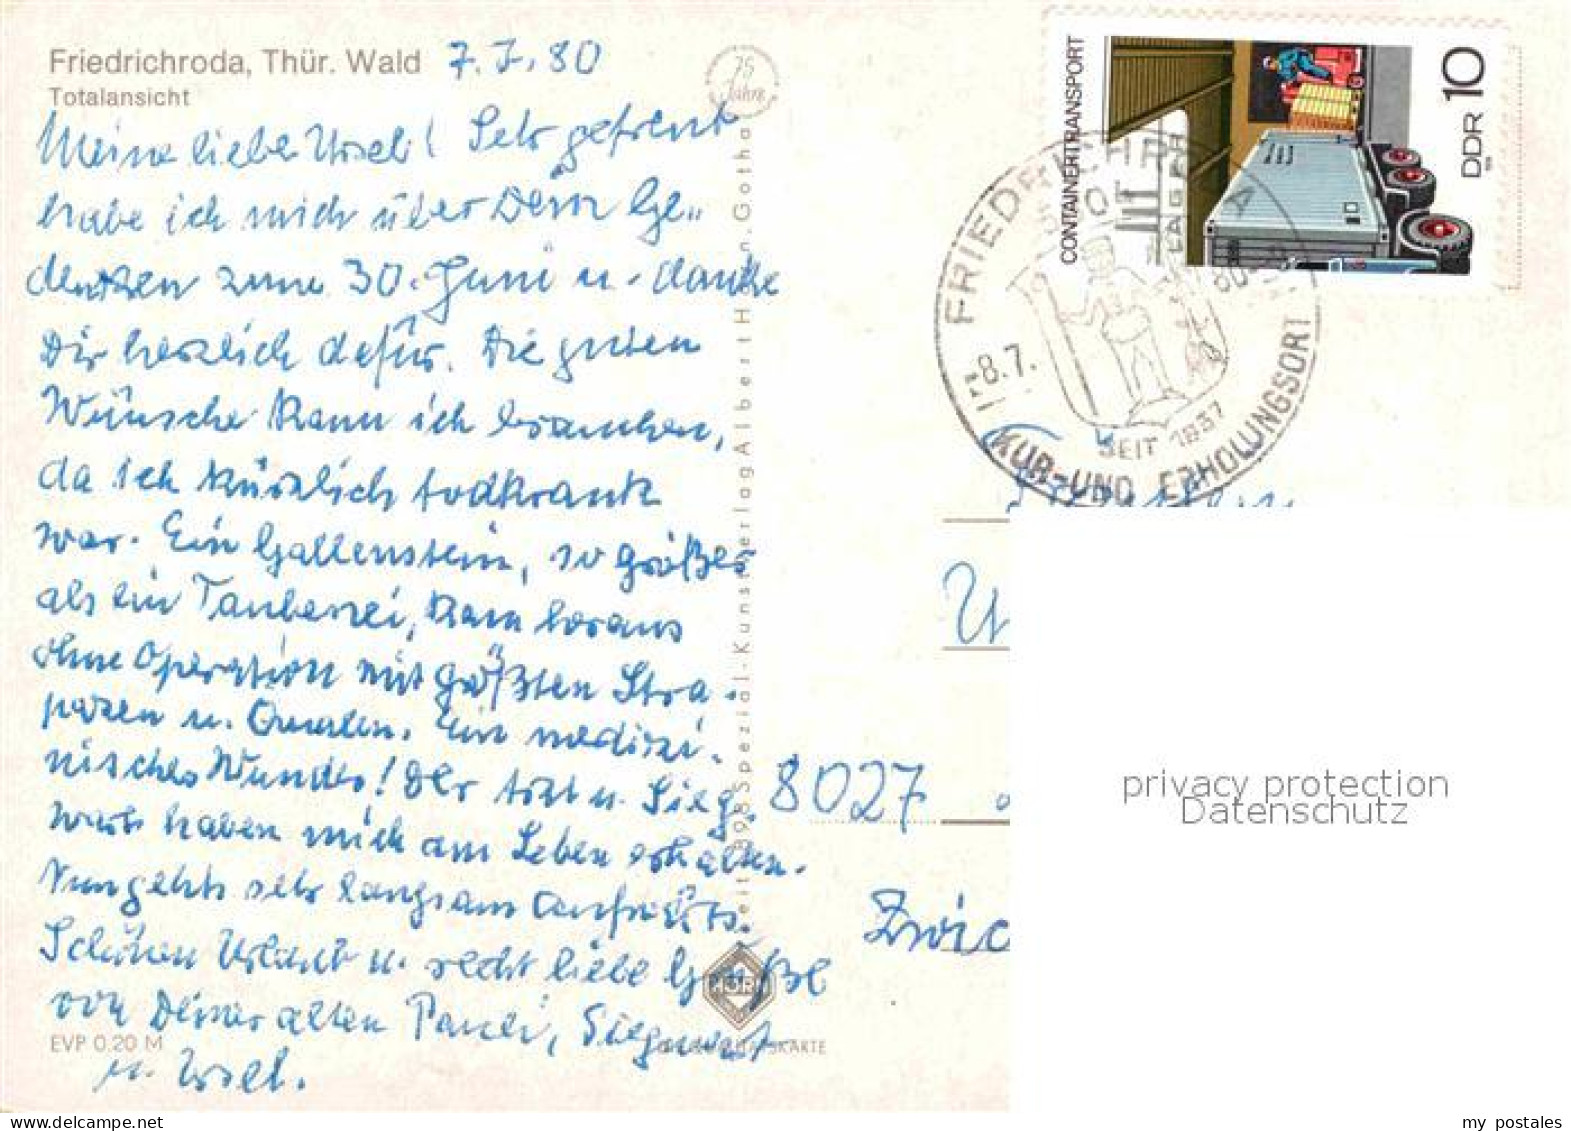 Friedrichroda, Thür. Wald 7.7.80
Totalansicht
Meine liebe Ursel! Sehr gefreut
habe ich mich über Dein Ge-
denken zum 30. Juni u. danke
Dir herzlich dafür. Die guten
Wünsche kann ich brauchen,
da ich kürzlich todkrank
war. Ein Gallenstein, so größer
als ein Taubenei, kam heraus
ohne Operation mit größten Stra-
pazen u. Qualen. Ein medizi-
nisches Wunder! Der Arzt u. Sieg-
wart haben mich am Leben erhalten.
Nun gehts sehr langsam aufwärts.
Schönen Urlaub u. recht liebe Grüße
von Deiner alten Pauli, Siegwart
u. Ursel.
EVP 0.20 M
75
Jahre
Spezial-Kunstverlag Albert H n. Gotha
seit 1898
CONTAINERTRANSPORT
DDR 10
FRIEDRICHRODA
8.7. 80
SEIT 1837
KUR- UND ERHOLUNGSORT
U
8027
Zwic
privacy protection
Datenschutz
my postales